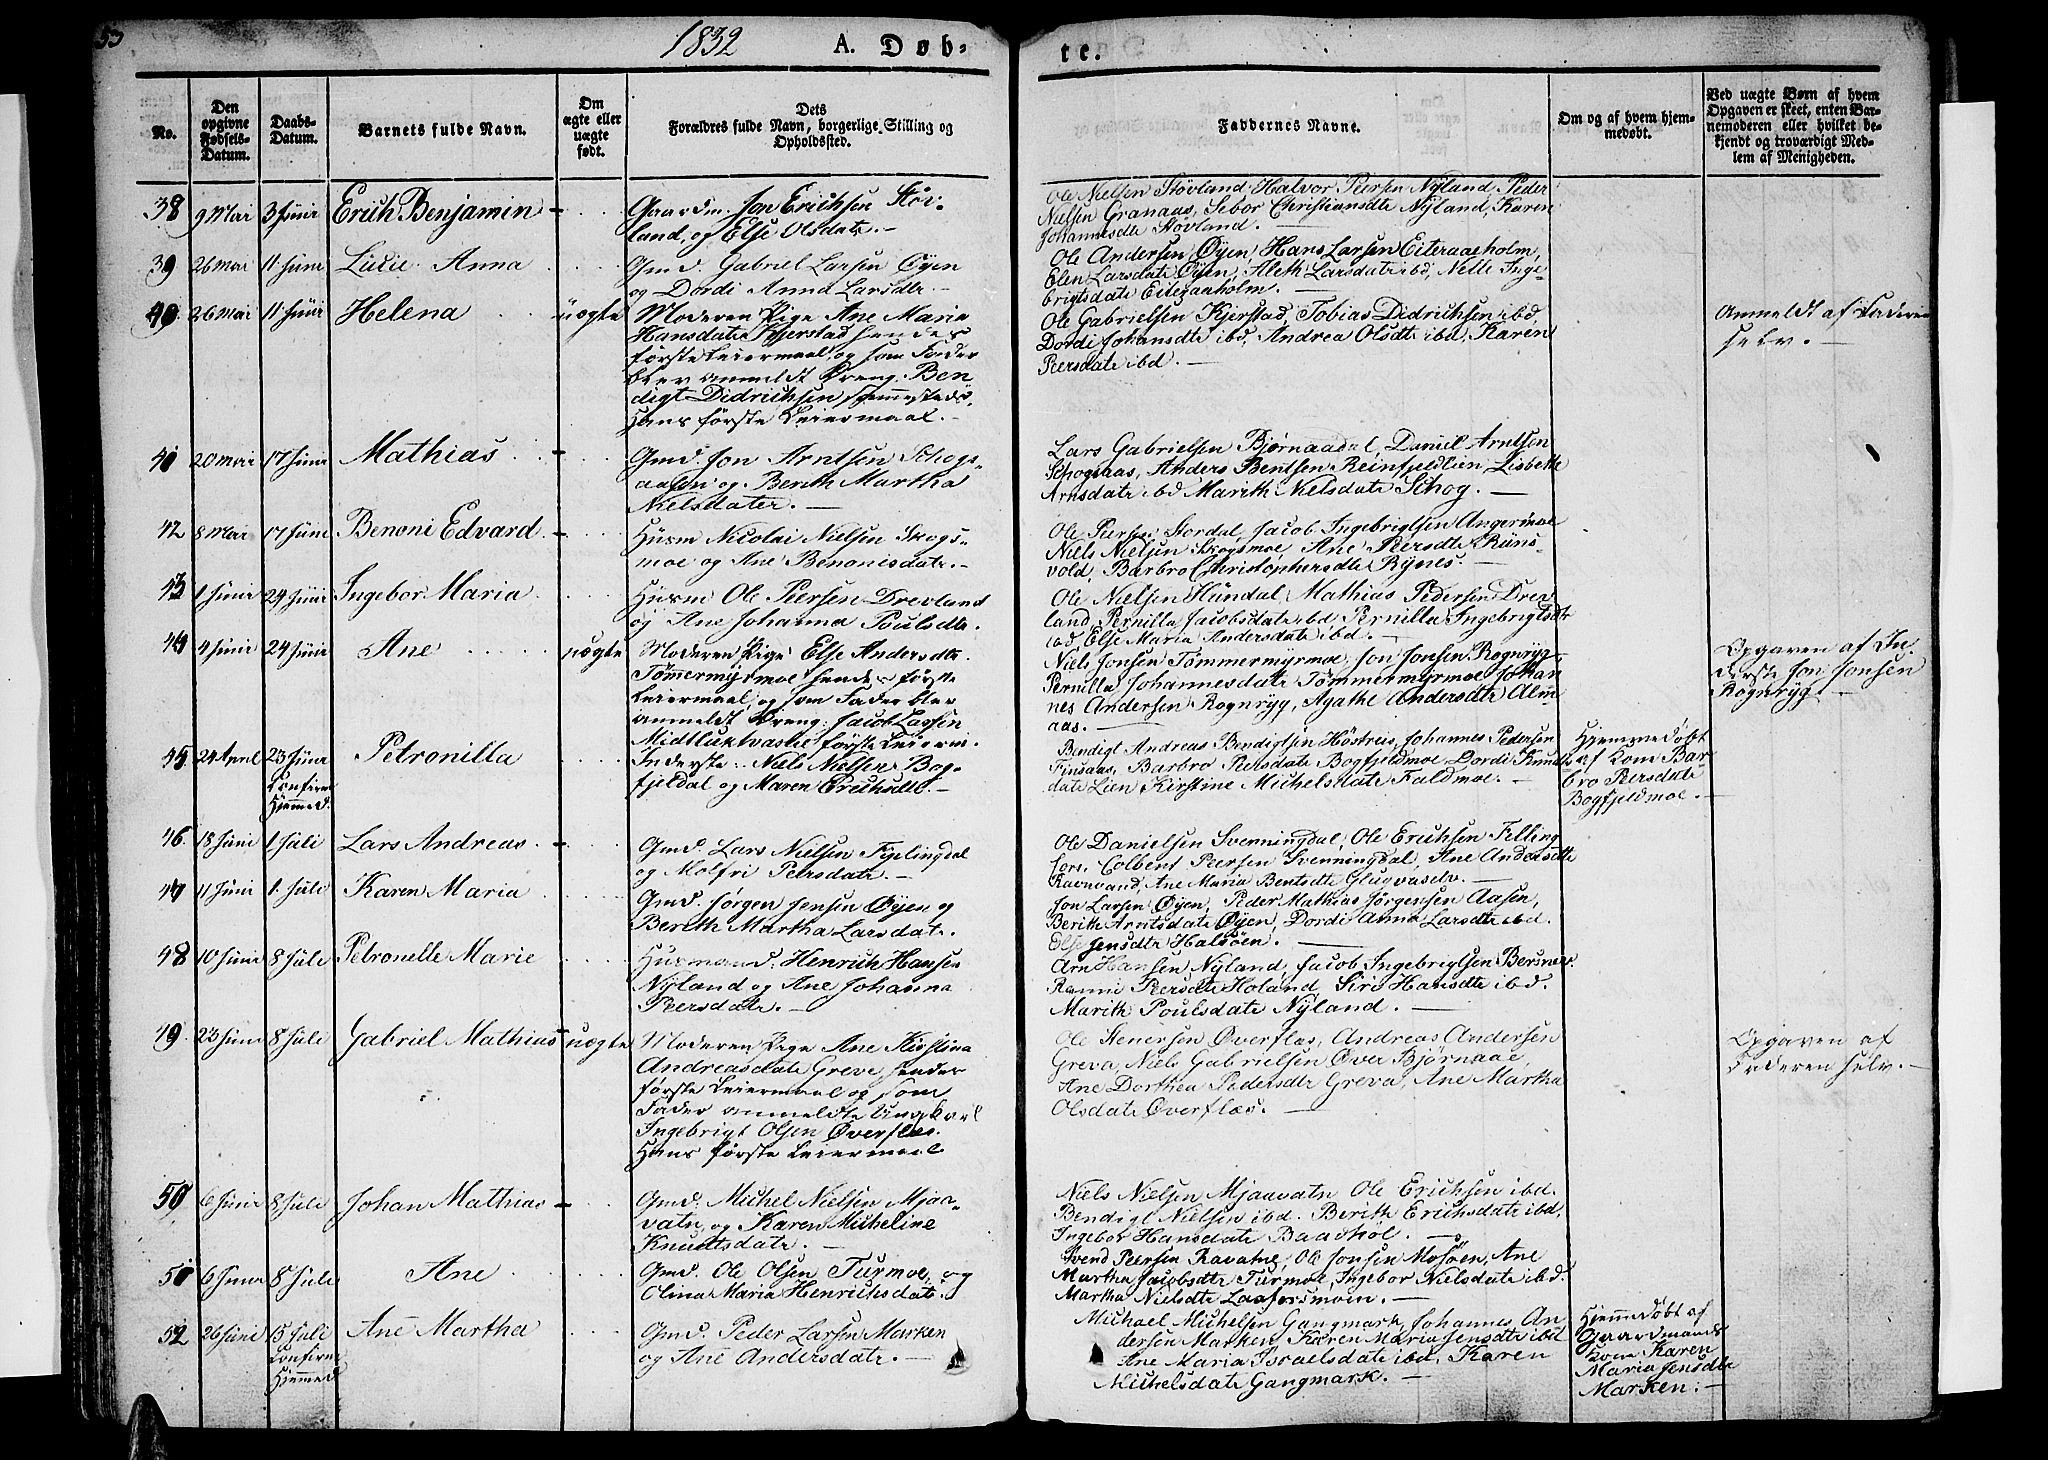 53
1832
A. Døb-
te.
No.
Den
opgivne
Fødsels-
Datum.
Daabs-
Datum.
Barnets fulde Navn.
Om
ægte eller
uægte
født.
Dets
Forældres fulde Navn, borgerlige Stilling og
Opholdssted.
Faddernes Navne.
Om og af hvem hjem-
medøbt.
Ved uægte Børn af hvem
Opgaven er skeet, enten Bar-
nemoderen eller hvilket be-
kjendt og troværdigt Med-
lem af Menigheden.
38 9 Mai 3 Juni Erich Benjamin -
Gaardm. Jon Erichsen Støv-
land, og Else Olsdatr. -
Ole Nielsen Støvland, Halvor Peersen Nyland, Peder
Nielsen Granaas, Sebor Christiansdtr Nyland, Karen
Johannesdtr Støvland. -
39 26 Mai 11 Juni Lucie Anna
Gmd. Gabriel Larsen Øyen
og Dordi Anna Larsdtr. -
Ole Andersen Øyen, Hans Larsen Eiteraaeholm,
Elen Larsdatr Øyen, Aleth Larsdatr ibd, Nelle Inge-
brigtsdatr Eiteraaholm. -
40 26 Mai 11 Juni Helena uægte
Moderen Pige Ane Maria
Hansdatr Kjerstad hendes
første Leiermaal, og som Fader
blev anmeldt Dreng: Ben
digt Didrichsen, sammesteds,
Hans første Leiermaal. -
Ole Gabrielsen Kjerstad, Tobias Didrichsen ibd.
Dordi Johansdtr ibd, Andrea Olsdtr ibd, Karen
Peersdatr ibd. -
Anmeldt af Faderen
selv. -
41 20 Mai 17 Juni Mathias -
Gmd Jon Arntsen Schogs-
aasen og Berith Martha
Nielsdater. -
Lars Gabrielsen Bjørnaadal, Daniel Arntsen
Schogsaas, Anders Bentsen Reinfjeldlien, Lisbeth
Arnsdatr ibd Marith Nielsdatr Schog. -
42 8 Mai 17 Juni Benoni Edvard -
Husm Nicolai Nielsen Skogs-
moe og Ane Benonisdatr. -
Ole Peersen Stordal, Jacob Ingebrigtsen Angermoe
Niels Nielsen Skogsmoe, Ane Peersdtr Runs-
vold, Barbro Christophersdtr Rynes. -
43 1 Juni 24 Juni Ingebor Maria
Husm Ole Peersen Drevland
og Ane Johanna Poulsdtr.
Ole Nielsen Hundal, Mathias Pedersen Drev
land, Pernilla Jacobsdatr ibd, Pernilla Ingebrigtsdtr
ibd, Else Maria Andersdatr ibd. -
44 4 Juni 24 Juni Ane uægte
Moderen Pige Else Andersdtr.
Tømmermyrmoe hendes første
Leiermaal, og som Fader blev
anmeldt Dreng: Jacob Lassen
Midtluktvaske første Leierm.
Niels Jonsen Tømmermyrmoe, Jon Jonsen Rognryg,
Pernilla Johannesdatr Tømmermyrmoe Johan
nes Andersen Rognryg, Agathe Andersdtr Alm
aas. -
Opgaven af In-
derste Jon Jonsen
Rognryg -
45 24 April 23 Juni
Confirm
Hjemmed. Petronilla
Inderste: Niels Nielsen Bog-
fjeldal og Maren Erichsdtr. -
Bendigt Andreas Bendigtsen Høstreis, Johannes Pedersen
Finsaas, Barbro Peersdatr Bogfjeldmoe Dordi Knuds
datr Lien Kirstine Michelsdatr Faldmoe. -
Hjemmedøbt
af Kone Bar-
bro Peersdatr
Bogfjeldmoe. -
46 18 Juni 1 Juli Lars Andreas -
Gmd. Lars Nielsen Fiplingdal
og Molfri Peersdatr. -
Ole Danielsen Svenningdal, Ole Erichsen Felling
fors, Colbent Peersen Svenningdal, Ane Andersdtr
Ravnvand, Ane Maria Bentsdtr Glugvaselv. -
47 11 Juni 1 Juli Karen Maria
Gmd. Jørgen Jensen Øyen og
Berith Martha Larsdatr.
Jon Larsen Øyen, Peder Mathias Jørgensen Aasen,
Berith Arntsdatr Øyen, Dordi Anna Larsdtr ibd.
Else Jensdtr Halsøen. -
48 10 Juni 8 Juli Petronelle Marie
Husmand. Henrich Hansen
Nyland og Ane Johanna
Peersdatr. -
Arn Hansen Nyland, Jacob Ingebrigtsen Bersnæs.
Rannie Peersdtr Holand, Siri Hansdtr ibd.
Marith Poulsdatr Nyland. -
49 23 Juni 8 Juli Gabriel Mathias uægte
Moderen Pige Ane Kirstina
Andreasdatr Greve, hendes
første Leiermaal og som
Fader anmeldte Ungkarl
Ingebrigt Olsen Øverflæs.
Hans første Leiermaal
Ole Stenersen Øverflæs, Andreas Andersen
Greva, Niels Gabrielsen Øver Bjørnaae,
Ane Dorthea Pedersdtr Greva, Ane Martha
Olsdatr Øverflæs. -
Opgaven af
Faderen selv. -
50 6 Juni 8 Juli Johan Mathias -
Gmd. Michel Nielsen Mjaa-
vatn, og Karen Micheline
Knudtsdatr. -
Niels Nielsen Mjaavatn Ole Erichsen ibd.
Bendigt Nielsen ibd. Berith Erichsdatr ibd,
Ingebor Hansdatr Baadhøl. -
51 6 Juni 8 Juli Ane
Gmd. Ole Olsen Turmoe, og
Olina Maria Henrichsdatr.
Svend Peersen Ravatne, Ole Jonsen Mosøen, Ane
Martha Jacobsdtr Turmoe, Ingebor Nielsdatr ibd.
Martha Nielsdtr Laaforsmoen. -
52 26 Juni 15 Juli
Confirm
Hjemmed Ane Martha
Gmd. Peder Larsen Marken
og Ane Andersdatr. -
Michael Michelsen Gangmark, Johannes An-
dersen Marken, Karen Maria Jensdtr ibd
Ane Maria Israelsdatr ibd, Karen
Michelsdatr Gangmark. -
Hjemmedøbt af
Gaardmands
kone Karen
Maria Jensdtr
Marken. -